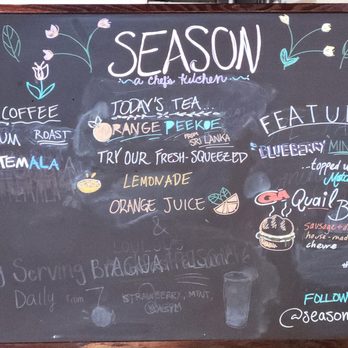 SEASON
a chef's kitchen
COFFEE
UM ROAST
TEMALA
TODAY'S TEA...
ORANGE PEEKOE
FROM
SRI LANKA
TRY OUR FRESH-SQUEEZED
LEMONADE
ORANGE JUICE
&
AGUA
Serving
Daily From 7
STRAWBERRY, MINT,
FEATU
BLUEBERRY MIN
...topped
GA Quail
B
sausage
house-mad
cheese
FOLLOW
@season